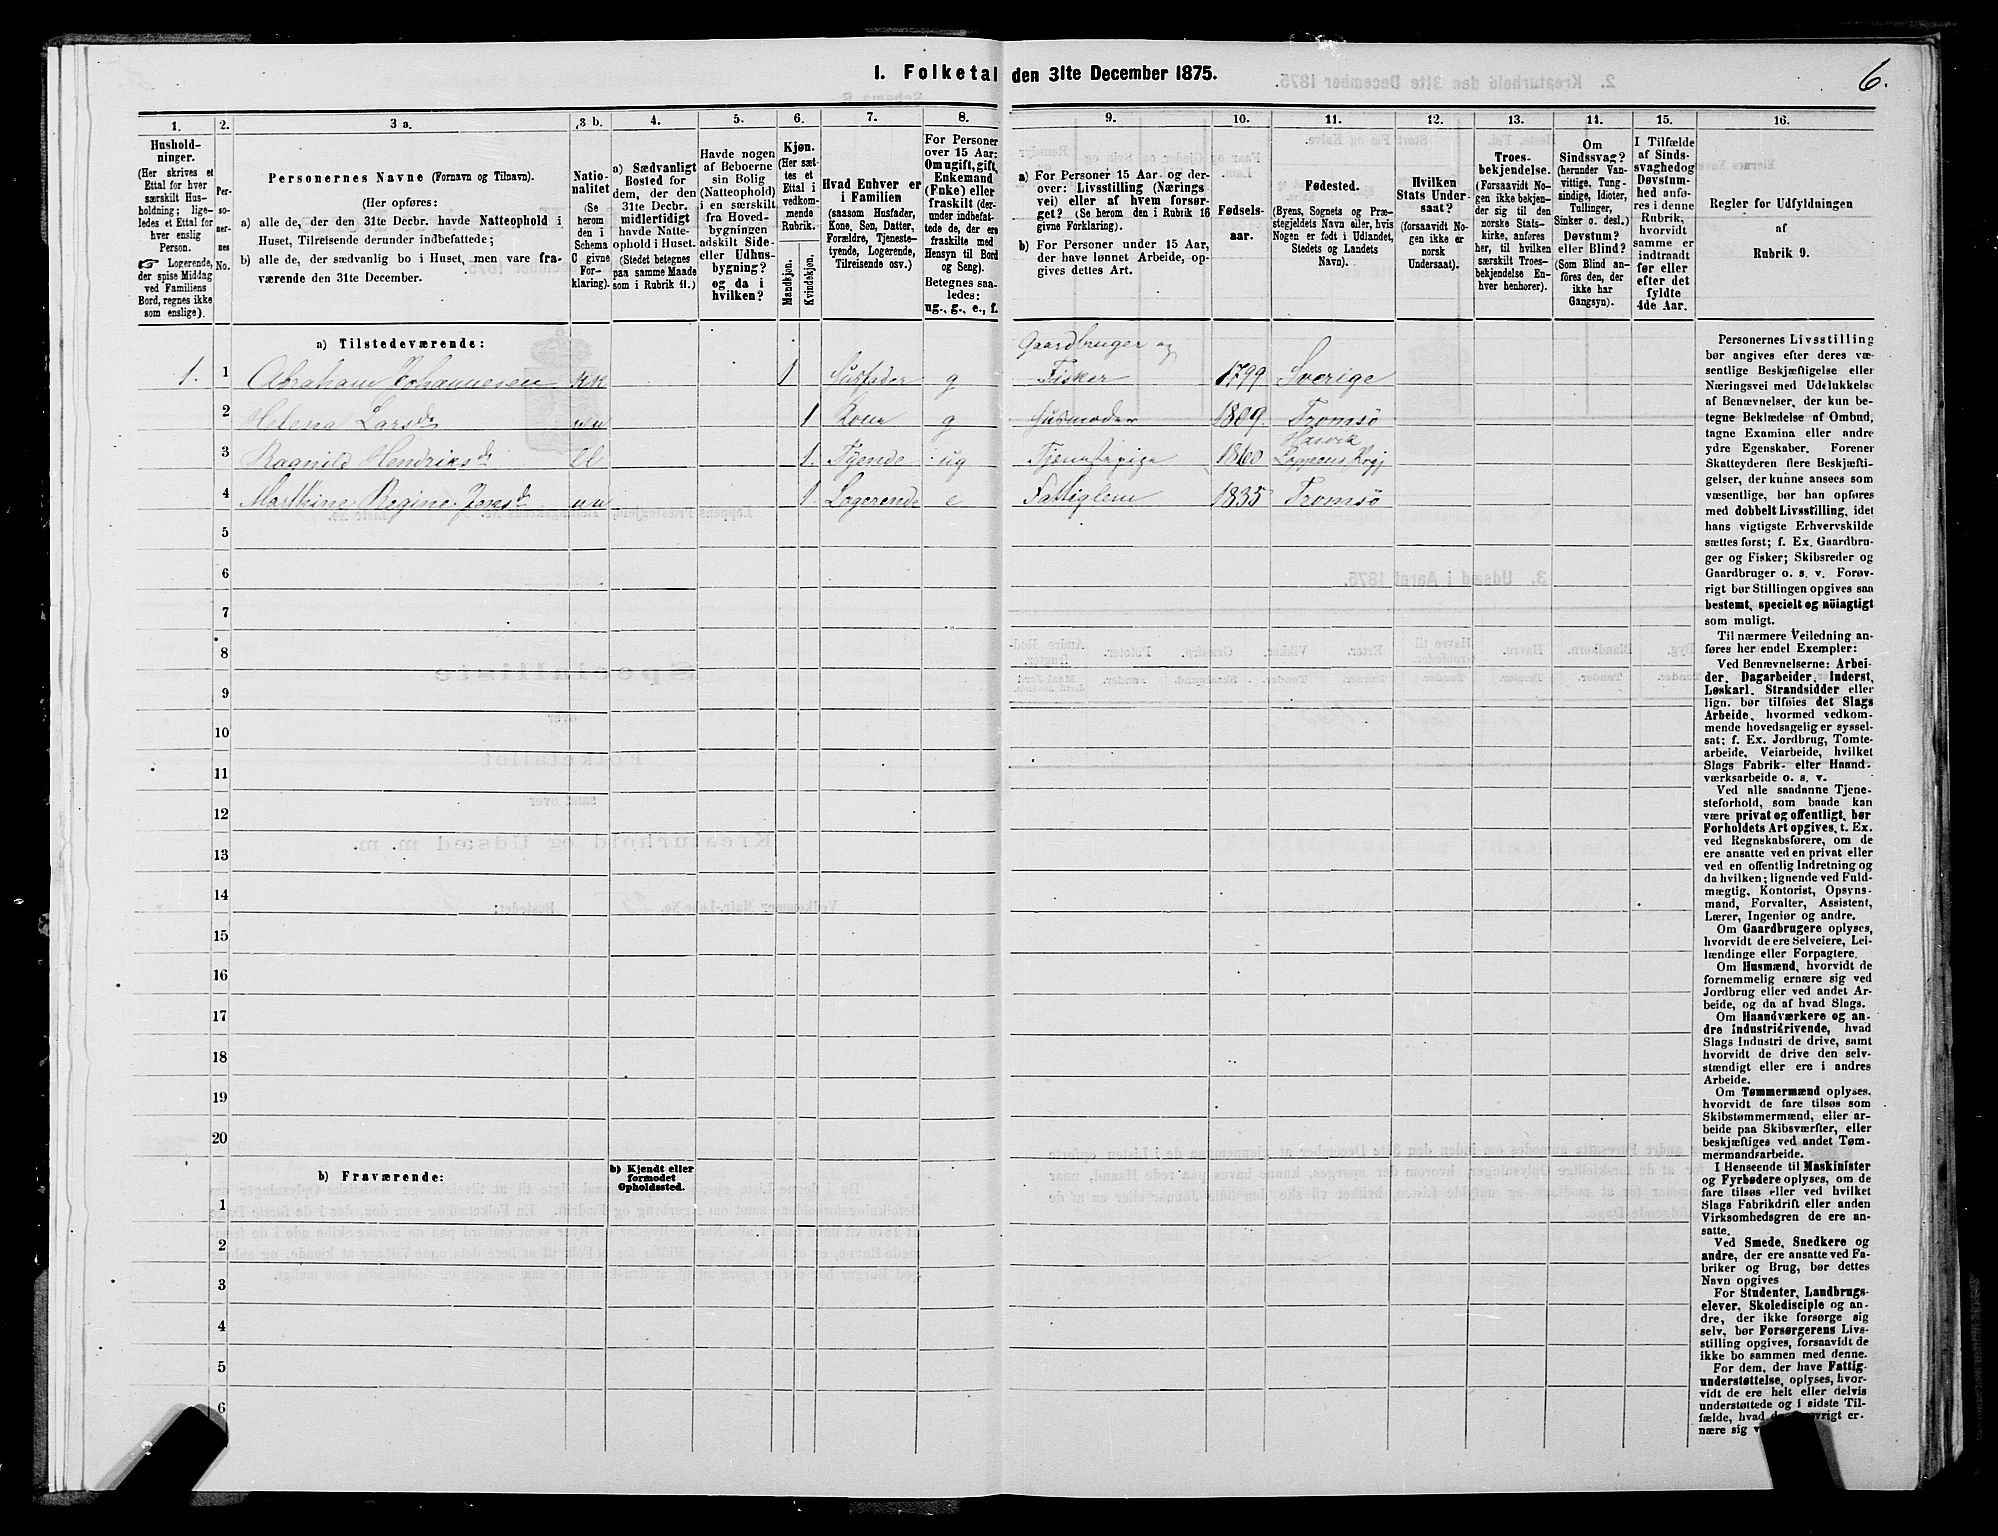 1. Folketal den 31te December 1875.
6.
1.
Hushold-
ninger.
(Her skrives et
Ettal for hver
særskilt Hus-
holdning; lige-
ledes et Ettal for
hver enslig
Person.
☞ Logerende,
der spise Middag
ved Familiens
Bord, regnes ikke
som enslige).
2.
Per-
so-
ner-
nes
No.
3 a.
Personernes Navne (Fornavn og Tilnavn).
(Her opføres:
a) alle de, der den 31te Decbr. havde Natteophold i
Huset, Tilreisende derunder indbefattede;
b) alle de, der sædvanlig bo i Huset, men vare fra-
værende den 31te December.
3 b.
Natio-
nalitet
(Se
herom
den i
Schema
C givne
For-
klaring).
4.
a) Sædvanligt
Bosted for
dem, der den
31te Decbr.
midlertidigt
havde Natte-
ophold i Huset.
(Stedet betegnes
paa samme Maade
som i Rubrik 11.)
5.
Havde nogen
af Beboerne
sin Bolig
(Natteophold)
i en særskilt
fra Hoved-
bygningen
adskilt Side-
eller Udhus-
bygning?
og da i
hvilken?
6.
Kjøn.
(Her sæt-
tes et
Ettal i
vedkom-
mende
Rubrik.
Mandkjøn.
Kvindekjøn.
7.
Hvad Enhver er
i Familien
(saasom Husfader,
Kone, Søn, Datter,
Forældre, Tjeneste-
tyende, Logerende,
Tilreisende osv.)
8.
For Personer
over 15 Aar:
Om ugift, gift,
Enkemand
(Enke) eller
fraskilt (der-
under indbefat-
tede de, der ere
fraskilte med
Hensyn til Bord
og Seng).
Betegnes saa-
ledes:
ug., g., e., f.
9.
a) For Personer 15 Aar og der-
over: Livsstilling (Nærings-
vei) eller af hvem forsør-
get? (Se herom den i Rubrik 16
givne Forklaring).
b) For Personer under 15 Aar,
der have lønnet Arbeide, op-
gives dettes Art.
10.
Fødsels-
aar.
11.
Fødested.
(Byens, Sognets og Præ-
stegjeldets Navn eller, hvis
Nogen er født i Udlandet,
Stedets og Landets
Navn).
12.
Hvilken
Stats Under-
saat?
(forsaavidt No-
gen ikke er
norsk
Undersaat).
13.
Troes-
bekjendelse.
(Forsaavidt No-
gen ikke bekjen-
der sig til den
norske Stats-
kirke, anføres
her, til hvilken
særskilt Troes-
bekjendelse En-
hver henhører).
14.
Om
Sindssvag?
(herunder Van-
vittige, Tung-
sindige, Idioter,
Tullinger,
Sinker o. desl.)
Døvstum?
eller Blind?
(Som Blind an-
føres den, der
ikke har
Gangsyn).
15.
I Tilfælde
af Sinds-
svaghed og
Døvstum-
hed anfø-
res i denne
Rubrik,
hvorvidt
samme er
indtraadt
før eller
efter det
fyldte
4de Aar.
16.
Regler for Udfyldningen
af
Rubrik 9.
a) Tilstedeværende:
1. 1 Abraham Johannesen KK 1 Husfader g Gaardbruger og
Fisker 1799 Sverige
2 Helena Larsd. uu 1 Kone g Husmoder 1809. Tromsö
3 Ragnild Hendriksd. 1. Tyende ug 1860 Hasvik
4 Marthine Regine uu 1 Logerende e Fattiglem 1835 Tromsö
5
6
7
8
9
10
11
12
13
14
15
16
17
18
19
20
b) Fraværende:
b) Kjendt eller
formodet
Opholdssted.
1
2
3
4
5
6
Personernes Livsstilling
bør angives efter deres væ-
sentlige Beskjæftigelse eller
Næringsvei med Udelukkelse
af Benævnelser, der kun be-
tegne Beklædelse af Ombud,
tagne Examina eller andre
ydre Egenskaber. Forener
Skatteyderen flere Beskjæfti-
gelser, der kunne ansees som
væsentlige, bør han opføres
med dobbelt Livsstilling, idet
hans vigtigste Erhvervskilde
sættes først; f. Ex. Gaardbru-
ger og Fisker; Skibsreder og
Gaardbruger o. s. v. Forøv-
rigt bør Stillingen opgives saa
bestemt, specielt og nöiagtigt
som muligt.
Til nærmere Veiledning an-
føres her endel Exempler:
Ved Benævnelserne: Arbei-
der, Dagarbeider, Inderst,
Løskarl, Strandsidder eller
lign. bør tilføies det Slags
Arbeide, hvormed vedkom-
mende hovedsagelig er syssel-
sat; f. Ex. Jordbrug, Tomte-
arbeide, Veiarbeide, hvilket
Slags Fabrik- eller Haand-
værksarbeide o. s. v.
Ved alle saadanne Tjene-
steforhold, som baade kan
være privat og offentligt, bør
Forholdets Art opgives, t. Ex.
ved Regnskabsførere, om de
ere ansatte ved en privat eller
ved en offentlig Indretning og
da hvilken; lignende ved Fuld-
mægtig, Kontorist, Opsyns-
mand, Forvalter, Assistent,
Lærer, Ingeniør og andre.
Om Gaardbrugere oplyses,
hvorvidt de ere Selveiere, Lei-
lændinge eller Forpagtere.
Om Husmænd, hvorvidt de
fornemmelig ernære sig ved
Jordbrug eller ved andet Ar-
beide, og da af hvad Slags.
Om Haandværkere og an-
dre Industridrivende, hvad
Slags Industri de drive, samt
hvorvidt de drive den selv-
stændigt eller ere i andres
Arbeide.
Om Tømmermænd oplyses,
hvorvidt de fare tilsøs som
Skibstømmermænd, eller ar-
beide paa Skibsværfter, eller
beskjæftiges ved andet Tøm-
mermandsarbeide.
I Henseende til Maskinister
og Fyrbødere oplyses, om de
fare tilsøs eller ved hvilket
Slags Fabrikdrift eller anden
Virksomhedsgren de ere an-
satte.
Ved Smede, Snedkere og
andre, der ere ansatte ved Fa-
briker og Brug, bør dettes
Navn opgives
For Studenter, Landbrugs-
elever, Skoledisciple og an-
dre, der ikke forsørge sig
selv, bør Forsørgerens Livs-
stilling opgives, forsaavidt de
ikke bo sammen med denne.
For dem, der have Fattig-
understøttelse, oplyses, hvor-
vidt de ere helt eller delvis
understøttede og i sidste Til-
fælde, hvad
nære sig